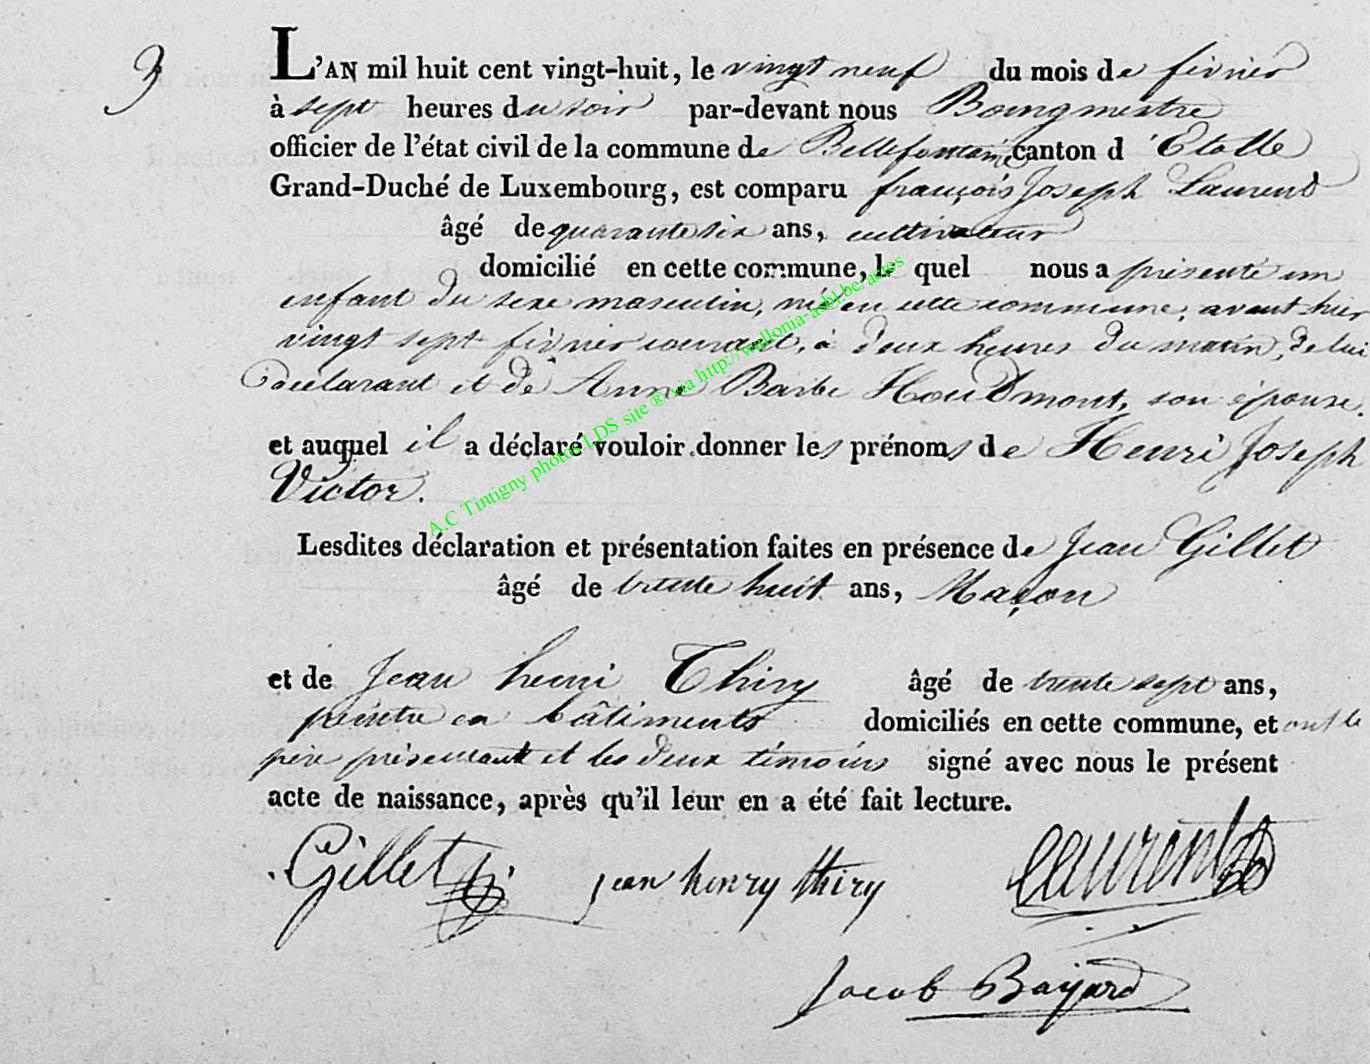 3
L'AN mil huit cent vingt-huit, le vingt neuf du mois de février
à sept heures du soir par-devant nous Bourgmestre
officier de l'état civil de la commune de Bellefontaine canton d'Etalle
Grand-Duché de Luxembourg, est comparu françois Joseph Laurent
âgé de quarante six ans, cultivateur
domicilié en cette commune, le quel nous a présenté un
enfant du sexe masculin, né en cette commune, avant hier
vingt sept février courant, à deux heures du matin, de lui
déclarant et de Anne Barbe Houdmont, son épouse,
et auquel il a déclaré vouloir donner les prénoms de Henri Joseph
Victor.
Lesdites déclaration et présentation faites en présence de Jean Gillet
âgé de trente huit ans, Maçon
et de Jean henri Thiry âgé de trente sept ans,
peintre en bâtiments domiciliés en cette commune, et ont le
père présentant et les deux témoins signé avec nous le présent
acte de naissance, après qu'il leur en a été fait lecture.
Gillet jean henry thiry Laurent
Jacob Bayard
A.C Tintigny photos LDS site ® via http://wallonia-asbl.be/actes